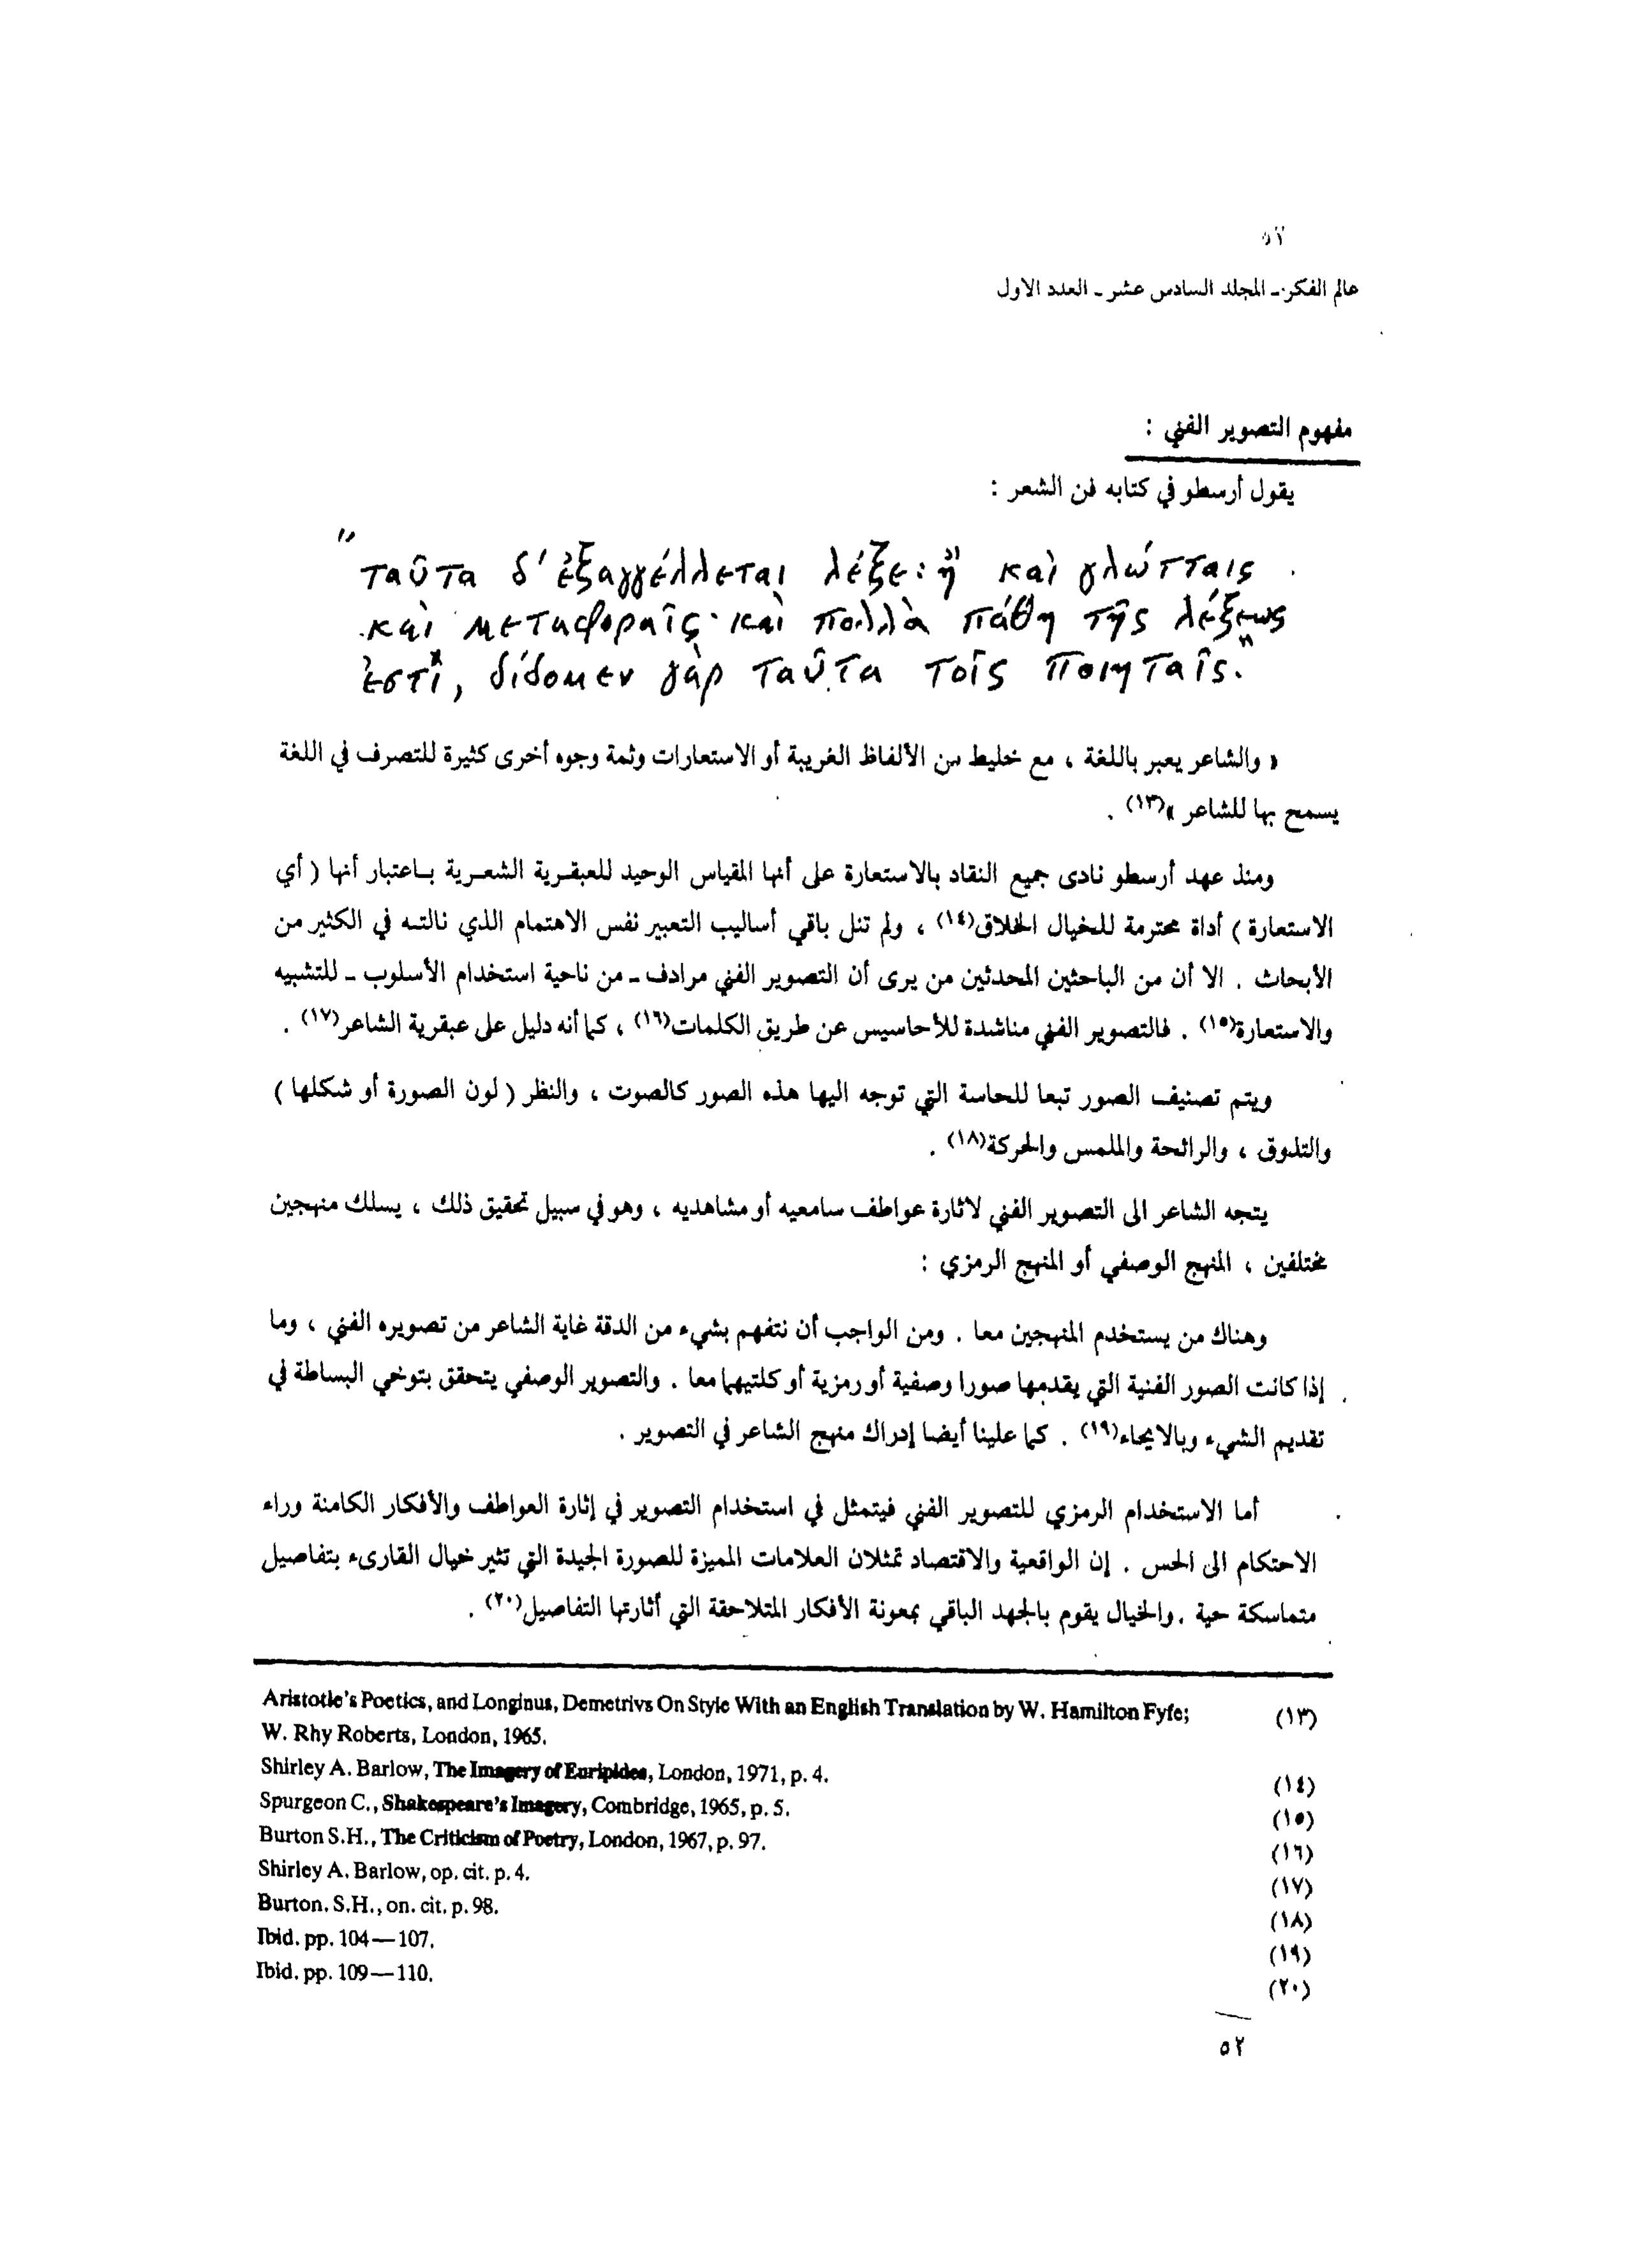 ٥٢
عالم الفكر - المجلد السادس عشر - العدد الاول
مفهوم التصوير الفني :
يقول أرسطو في كتابه فن الشعر :
"ταῦτα δ' ἐξαγγέλλεται λέξει ἢ καὶ γλώτταις
καὶ μεταφοραῖς· καὶ πολλὰ πάθη τῆς λέξεως
ἐστί, δίδομεν γὰρ ταῦτα τοῖς ποιηταῖς."
« والشاعر يعبر باللغة ، مع خليط من الألفاظ الغريبة أو الاستعارات وثمة وجوه أخرى كثيرة للتصرف في اللغة
يسمح بها للشاعر »(١٣) .
ومنذ عهد أرسطو نادى جميع النقاد بالاستعارة على أنها المقياس الوحيد للعبقرية الشعرية باعتبار أنها ( أي
الاستعارة ) أداة محترمة للخيال الخلاق(١٤) ، ولم تنل باقي أساليب التعبير نفس الاهتمام الذي نالته في الكثير من
الأبحاث . الا أن من الباحثين المحدثين من يرى أن التصوير الفني مرادف - من ناحية استخدام الأسلوب - للتشبيه
والاستعارة(١٥) . فالتصوير الفني مناشدة للأحاسيس عن طريق الكلمات(١٦) ، كما أنه دليل على عبقرية الشاعر(١٧) .
ويتم تصنيف الصور تبعا للحاسة التي توجه اليها هذه الصور كالصوت ، والنظر ( لون الصورة أو شكلها )
والتذوق ، والرائحة والملمس والحركة(١٨) .
يتجه الشاعر الى التصوير الفني لاثارة عواطف سامعيه أو مشاهديه ، وهو في سبيل تحقيق ذلك ، يسلك منهجين
مختلفين ، المنهج الوصفي أو المنهج الرمزي :
وهناك من يستخدم المنهجين معا . ومن الواجب أن نتفهم بشيء من الدقة غاية الشاعر من تصويره الفني ، وما
إذا كانت الصور الفنية التي يقدمها صورا وصفية أو رمزية أو كلتيهما معا . والتصوير الوصفي يتحقق بتوخي البساطة في
تقديم الشيء وبالايحاء(١٩) . كما علينا أيضا إدراك منهج الشاعر في التصوير .
أما الاستخدام الرمزي للتصوير الفني فيتمثل في استخدام التصوير في إثارة العواطف والأفكار الكامنة وراء
الاحتكام الى الحس . إن الواقعية والاقتصاد تمثلان العلامات المميزة للصورة الجيدة التي تثير خيال القارىء بتفاصيل
متماسكة حية . والخيال يقوم بالجهد الباقي بمعونة الأفكار المتلاحقة التي أثارتها التفاصيل(٢٠) .
(١٣) Aristotle's Poetics, and Longinus, Demetrivs On Style With an English Translation by W. Hamilton Fyfe;
W. Rhy Roberts, London, 1965.
(١٤) Shirley A. Barlow, The Imagery of Euripides, London, 1971, p. 4.
(١٥) Spurgeon C., Shakespeare's Imagery, Combridge, 1965, p. 5.
(١٦) Burton S.H., The Criticism of Poetry, London, 1967, p. 97.
(١٧) Shirley A. Barlow, op. cit. p. 4.
(١٨) Burton. S.H., on. cit. p. 98.
(١٩) Ibid. pp. 104—107.
(٢٠) Ibid. pp. 109—110.
٥٢